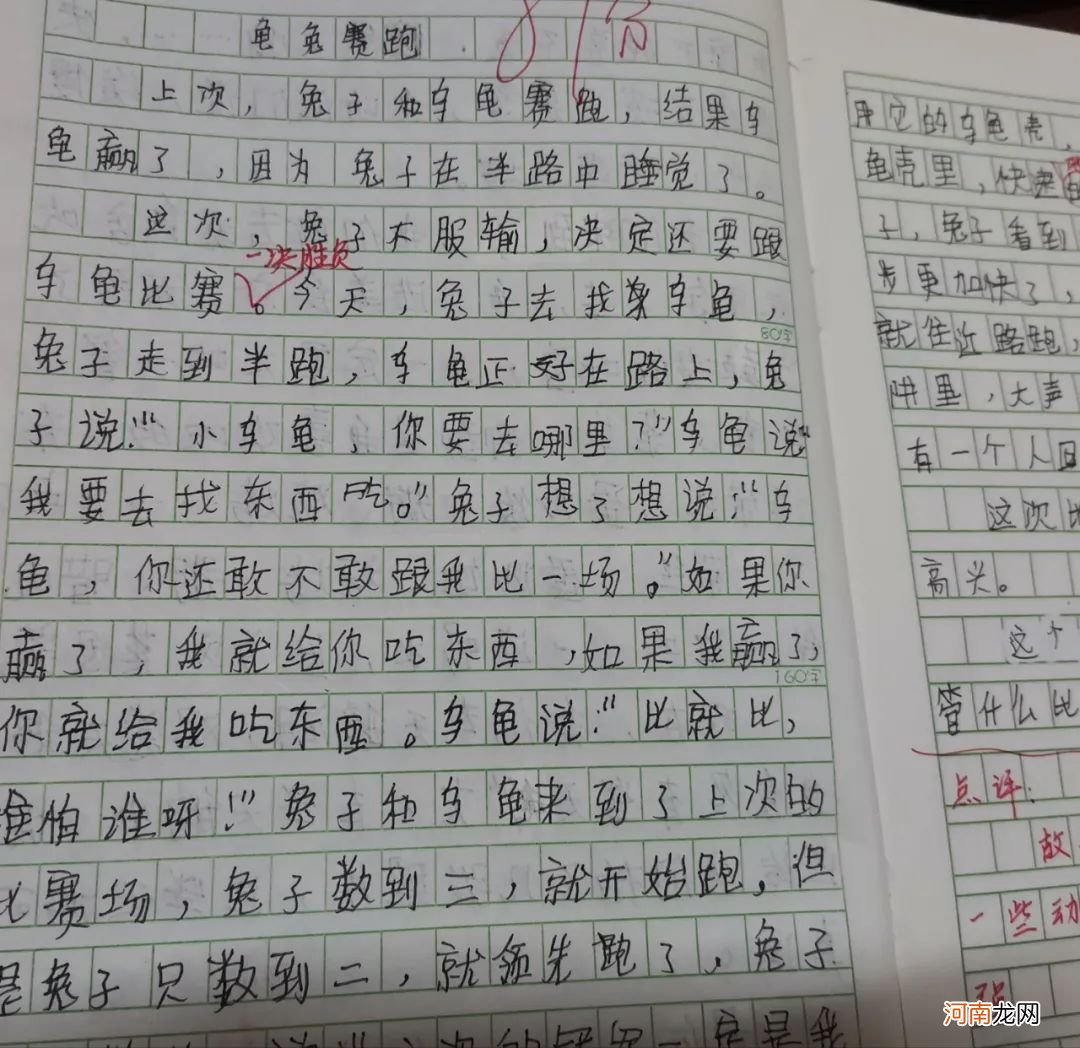 龟兔赛跑
上次，兔子和乌龟赛跑，结果乌
龟赢了，因为兔子在半路中睡觉了。
这次，兔子不服输，决定还要跟
一决胜负
乌龟比赛。今天，兔子去找乌龟，
80字
兔子走到半跑，乌龟正好在路上，兔
子说：“小乌龟，你要去哪里？”乌龟说
我要去找东西吃。”兔子想了想说：“乌
龟，你还敢不敢跟我比一场。”如果你
赢了，我就给你吃东西，如果我赢了，
160字
你就给我吃东西。乌龟说：“比就比，
谁怕谁呀！”兔子和乌龟来到了上次的
比赛场，兔子数到三，就开始跑，但
是兔子只数到二，就领先跑了，兔子
用它的乌龟壳，
龟壳里，快速
子，兔子看到
步更加快了，
就住近路跑，
阱里，大声
有一个人
这次比
高兴。
这个
管什么比
点评：
故
一些动
河南龙网